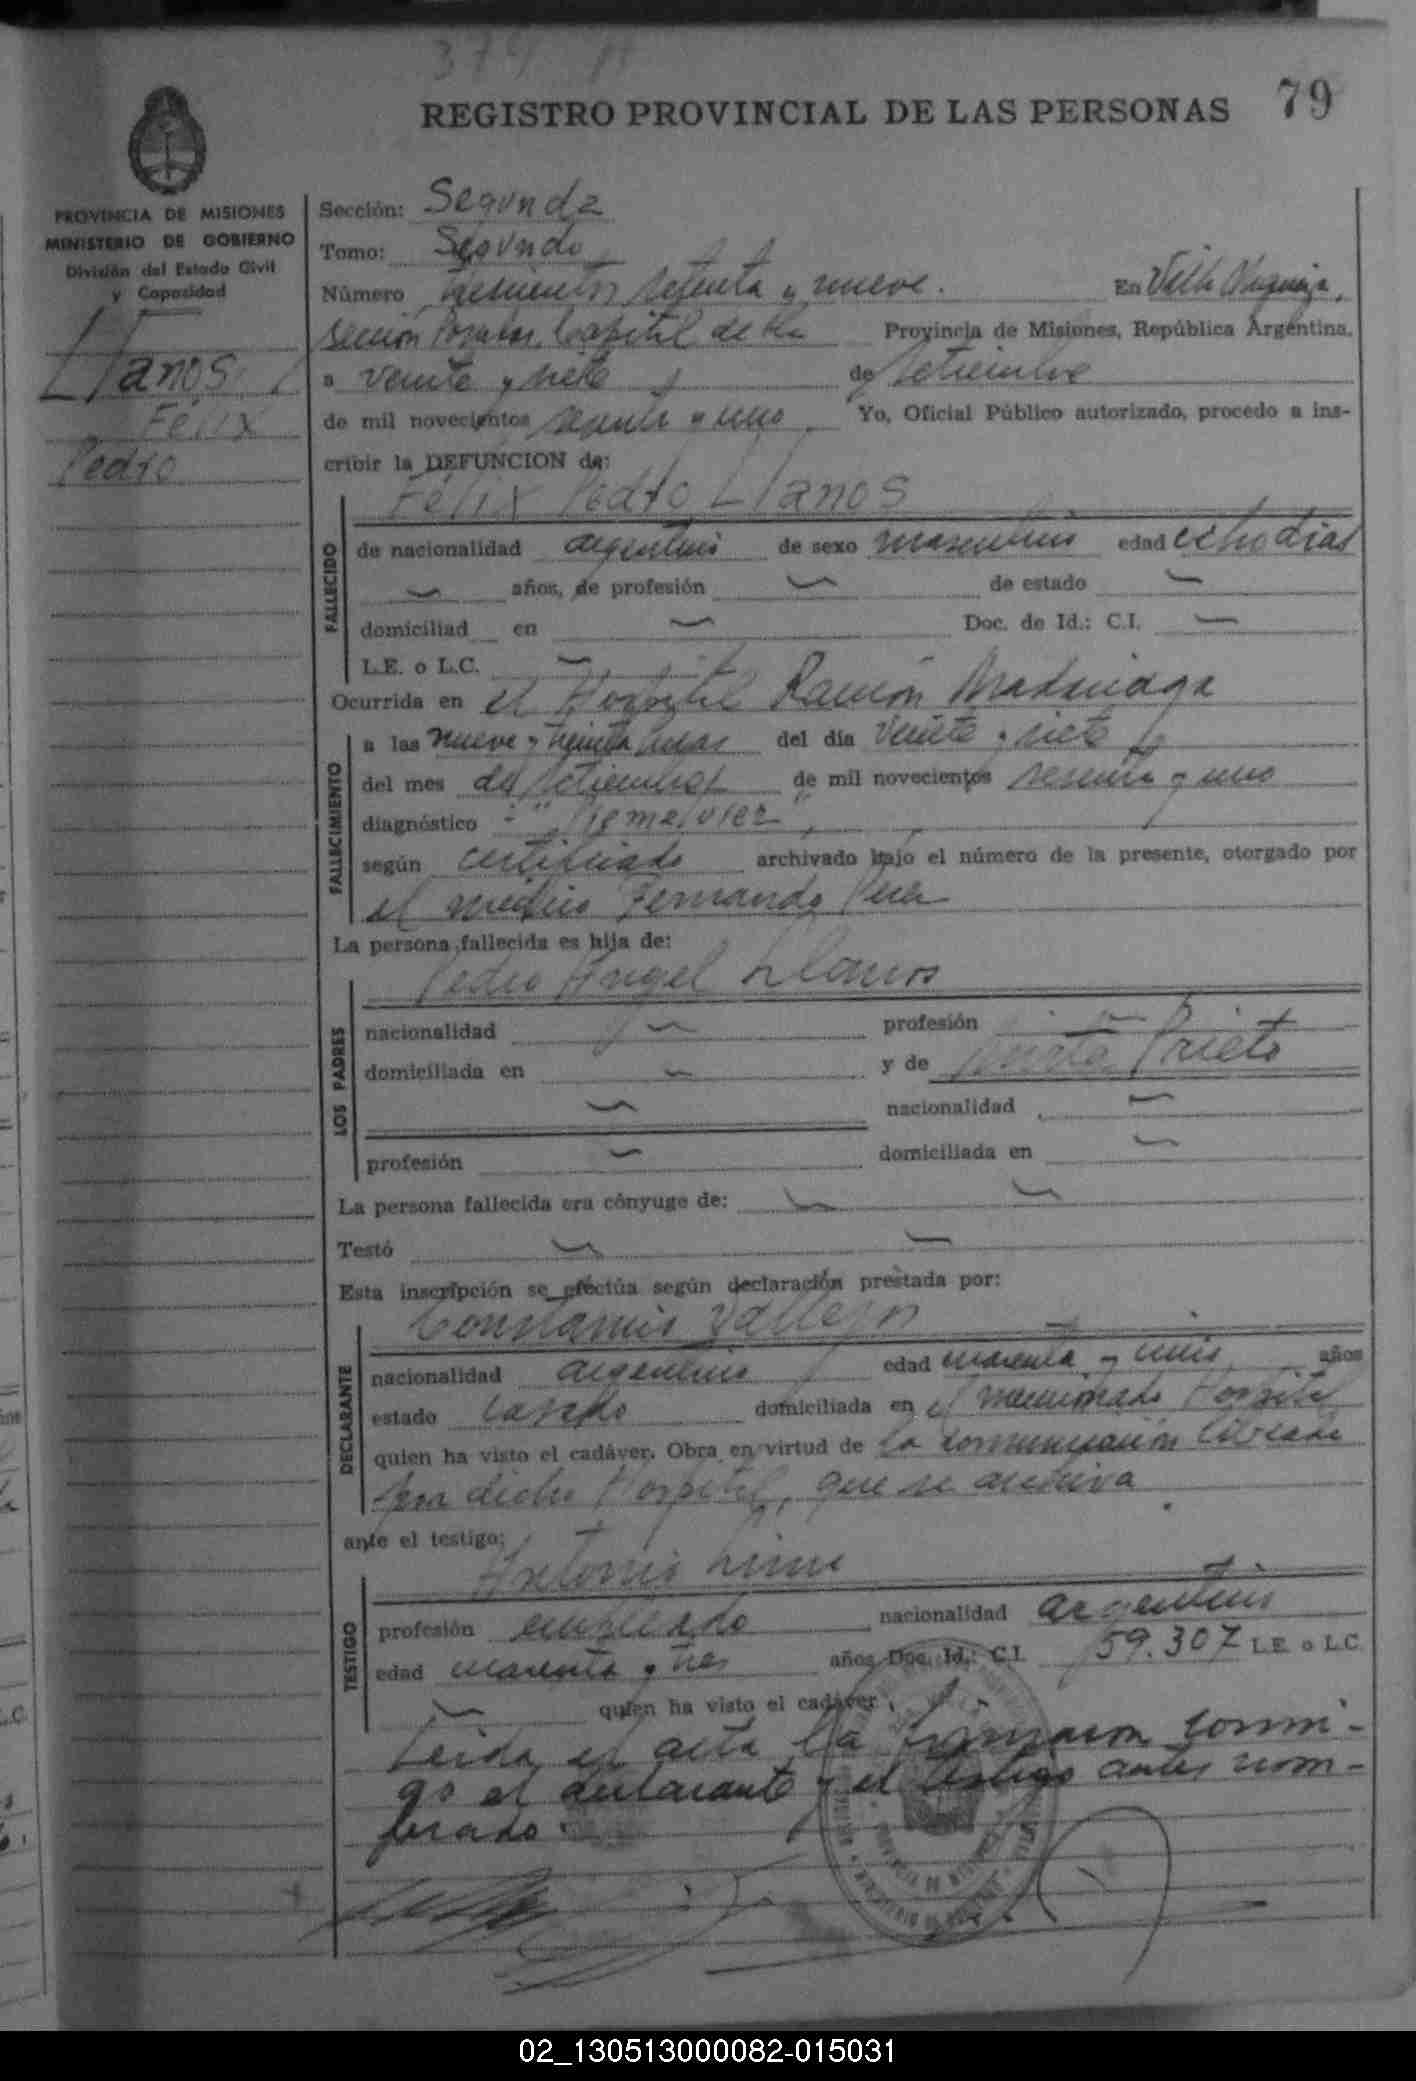 379 A
79
REGISTRO PROVINCIAL DE LAS PERSONAS
PROVINCIA DE MISIONES
MINISTERIO DE GOBIERNO
División del Estado Civil
y Capacidad
Llanos
Félix
Pedro
Sección: Segunda
Tomo: Segundo
Número trescientos setenta y nueve. En Villa
sección Capital de la Provincia de Misiones, República Argentina,
a veinte y siete de setiembre
de mil novecientos sesenta y uno Yo, Oficial Público autorizado, procedo a ins-
cribir la DEFUNCION de:
Félix Pedro Llanos
FALLECIDO
de nacionalidad argentino de sexo masculino edad ocho dias
años, de profesión de estado
domiciliad en Doc. de Id.: C.I.
L.E. o L.C.
Ocurrida en el Hospital Ramón Madariaga
FALLECIMIENTO
a las nueve y treinta horas del día veinte y siete
del mes de setiembre de mil novecientos sesenta y uno
diagnóstico "Prematurez"
según certificado archivado bajo el número de la presente, otorgado por
el médico Fernando
La persona fallecida es hija de:
LOS PADRES
Pedro Angel Llanos
nacionalidad profesión
domiciliada en y de Prieto
nacionalidad
profesión domiciliada en
La persona fallecida era cónyuge de:
Testó
Esta inscripción se efectúa según declaración prestada por:
DECLARANTE
Constancio Vallejos
nacionalidad argentino edad cuarenta y años
estado casado domiciliada en el mencionado Hospital
quien ha visto el cadáver. Obra en virtud de la comunicación librada
por dicho Hospital, que se archiva
ante el testigo:
TESTIGO
Antonio
profesión empleado nacionalidad argentino
edad cuarenta y tres años Doc. Id.: C.I. 59.307 L.E. o L.C.
quien ha visto el cadáver.
Leida el acta la firmaron conmi-
go el declarante y el testigo antes nom-
brado.
02_130513000082-015031